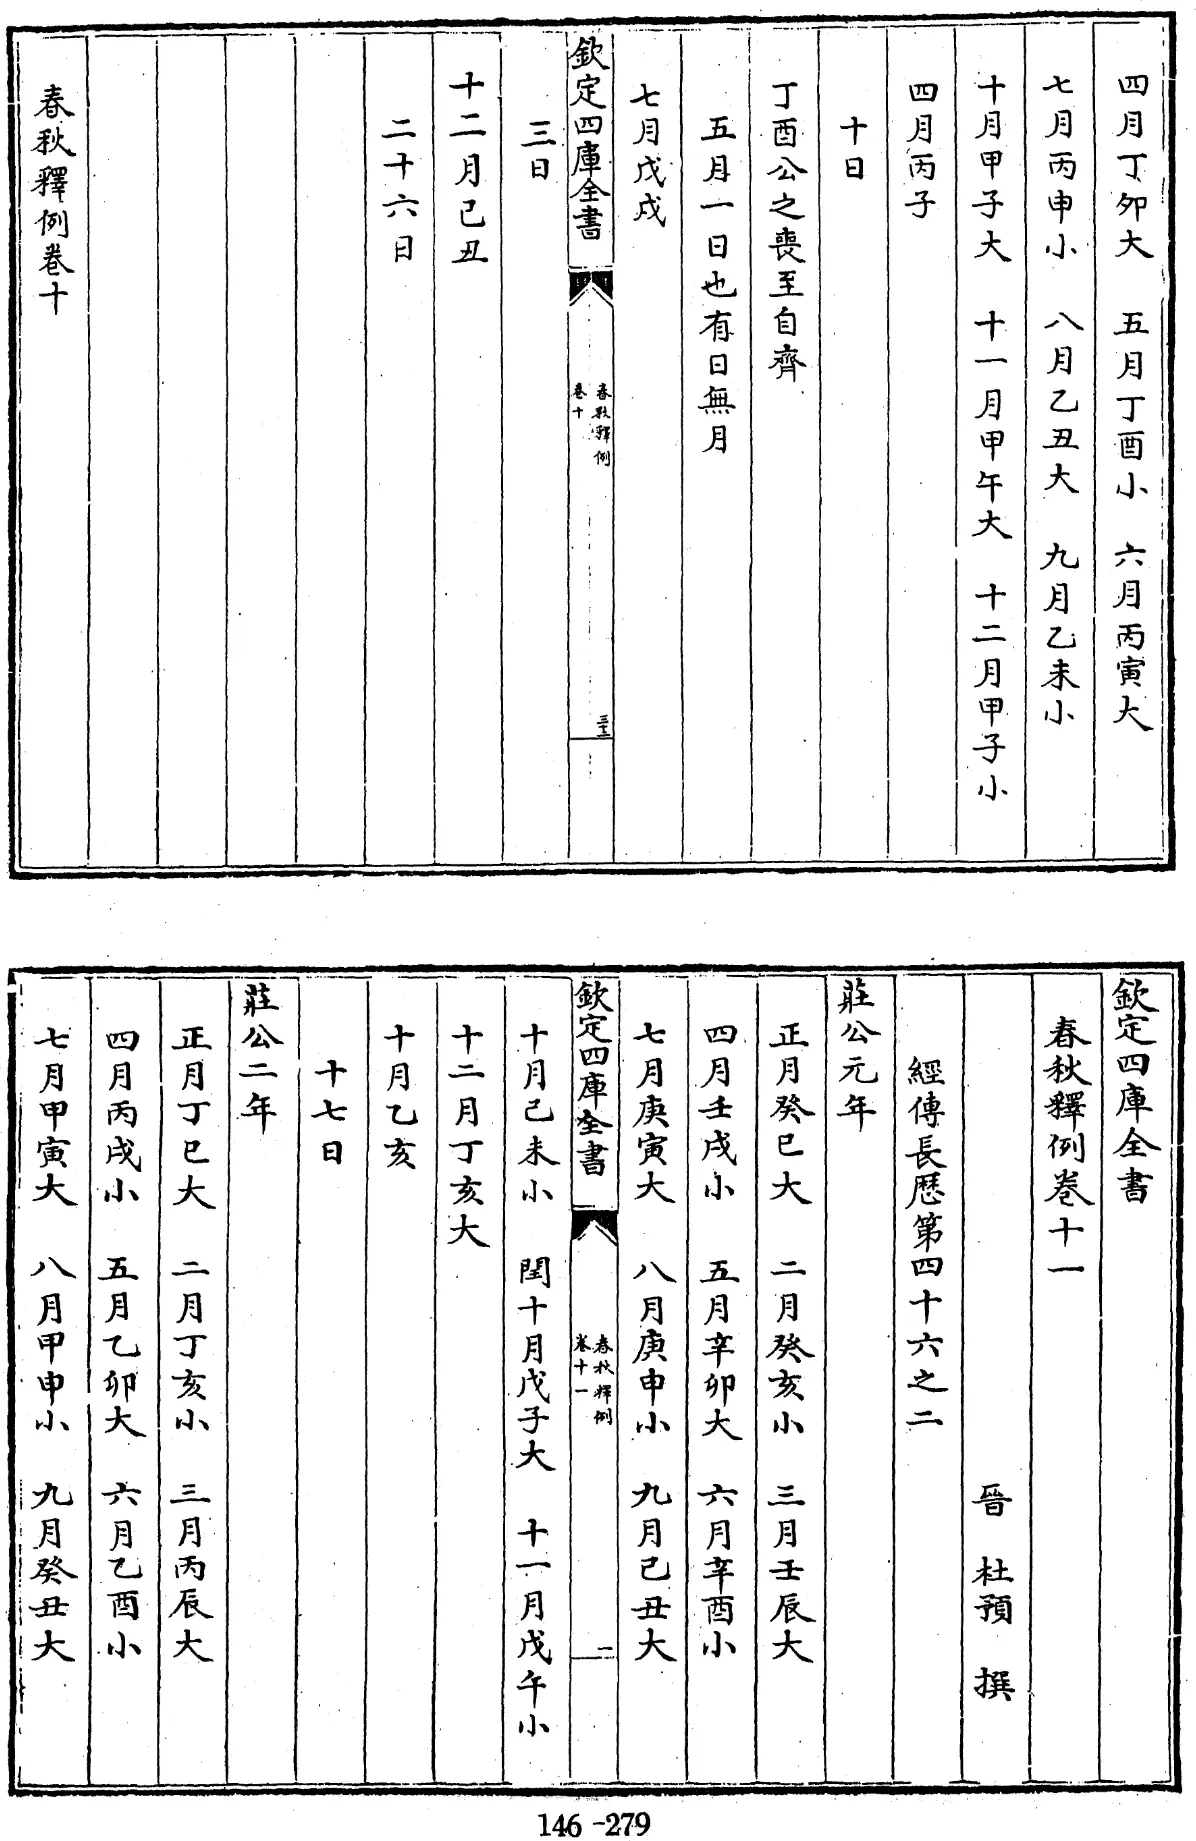 四月丁卯大 五月丁酉小 六月丙寅大
七月丙申小 八月乙丑大 九月乙未小
十月甲子大 十一月甲午大 十二月甲子小
四月丙子
十日
丁酉公之喪至自齊
五月一日也有日無月
七月戊戌
欽定四庫全書
春秋釋例
卷十
三十二
三日
十二月己丑
二十六日
春秋釋例卷十
欽定四庫全書
春秋釋例卷十一
晉 杜預 撰
經傳長歷第四十六之二
莊公元年
正月癸巳大 二月癸亥小 三月壬辰大
四月壬戌小 五月辛卯大 六月辛酉小
七月庚寅大 八月庚申小 九月己丑大
欽定四庫全書
春秋釋例
卷十一
一
十月己未小 閏十月戊子大 十一月戊午小
十二月丁亥大
十月乙亥
十七日
莊公二年
正月丁巳大 二月丁亥小 三月丙辰大
四月丙戌小 五月乙卯大 六月乙酉小
七月甲寅大 八月甲申小 九月癸丑大
146-279